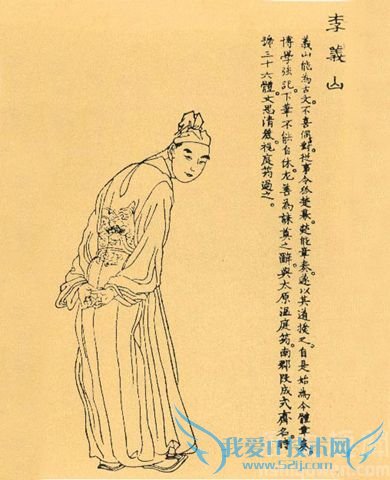 李義山
義山能為古文。不喜偶對。從事令狐楚幕。楚能章奏。遂以其道授之。自是始為今體章奏。
博學強記。下筆不能自休。尤善為誄奠之辭。與太原溫庭筠。南郡段成式齊名。時
號三十六體。文思清麗。視庭筠過之。
我爱IT技术网
www.52ij.com